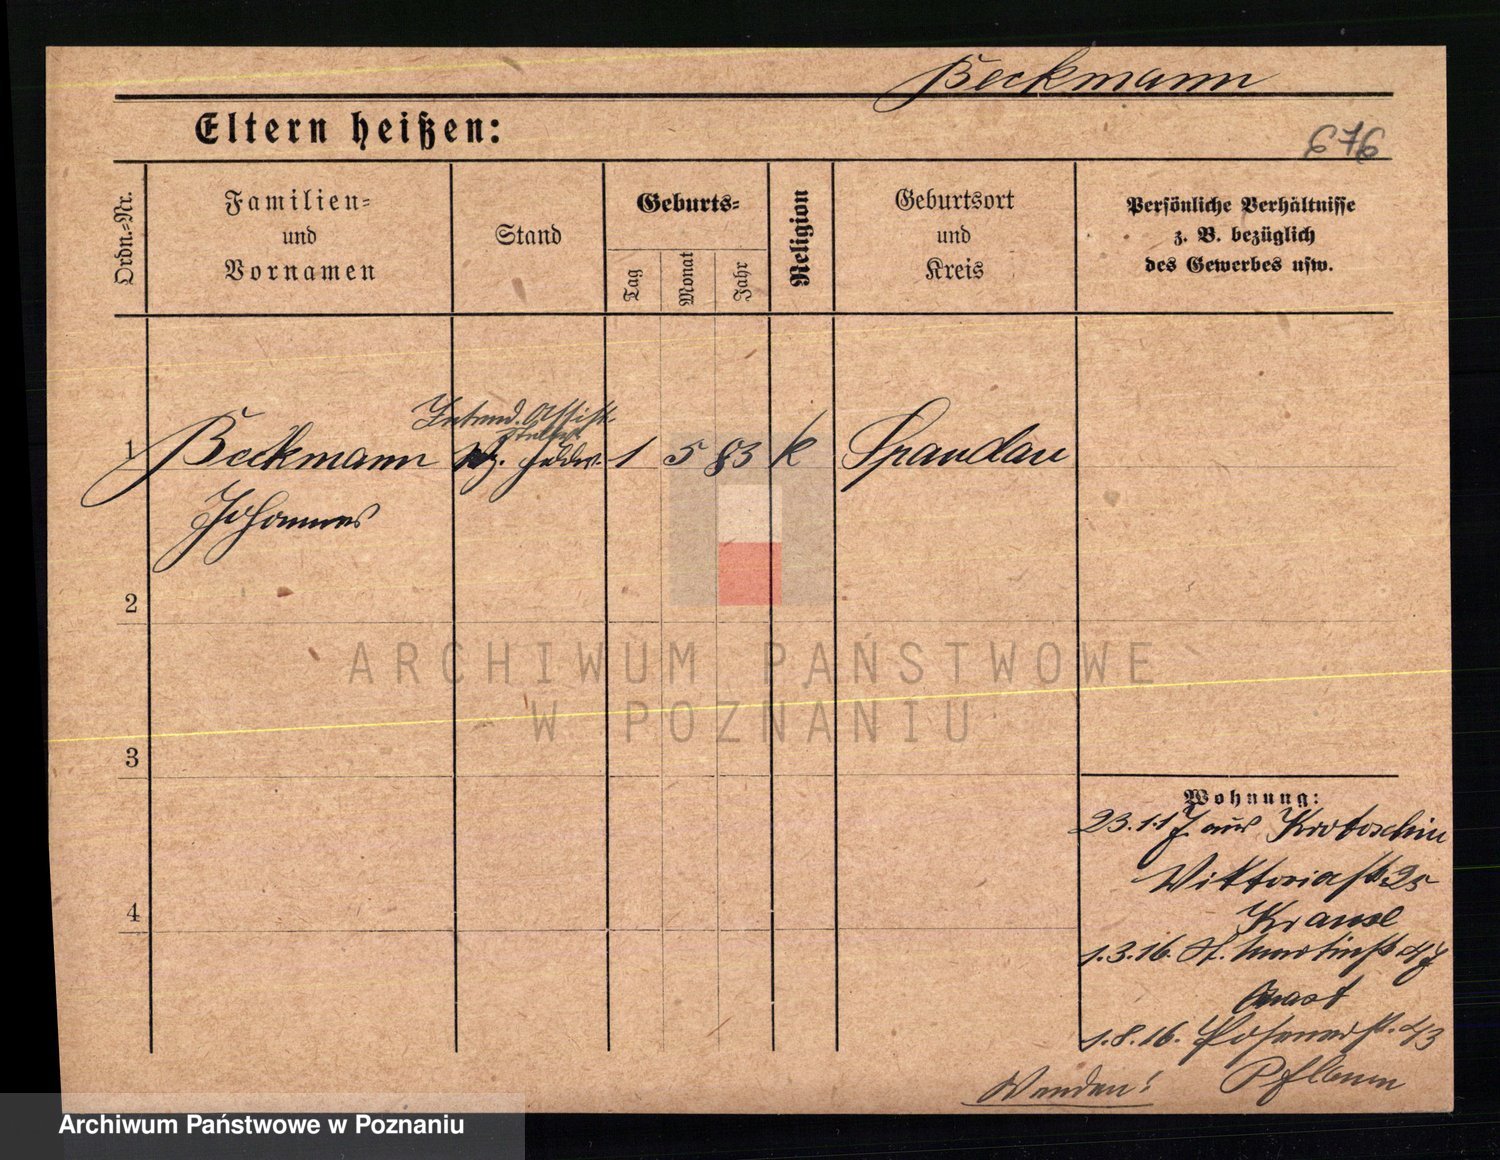 Beckmann
Eltern heißen:
676
Ordn.-Nr.
Familien-
und
Vornamen
Stand
Geburts-
Tag
Monat
Jahr
Religion
Geburtsort
und
Kreis
Persönliche Verhältnisse
z. B. bezüglich
des Gewerbes usw.
Intend. Assist.
1 Beckmann 1 5 83 k Spandau
Johannes
2
ARCHIWUM PAŃSTWOWE
W POZNANIU
3
Wohnung:
23.1.17 aus Krotoschin
Viktoriastr 25
Krause
4
1.3.16. St. Martinstr 47
1.8.16. Posenerstr. 43
Pflaum
Wenden!
Archiwum Państwowe w Poznaniu